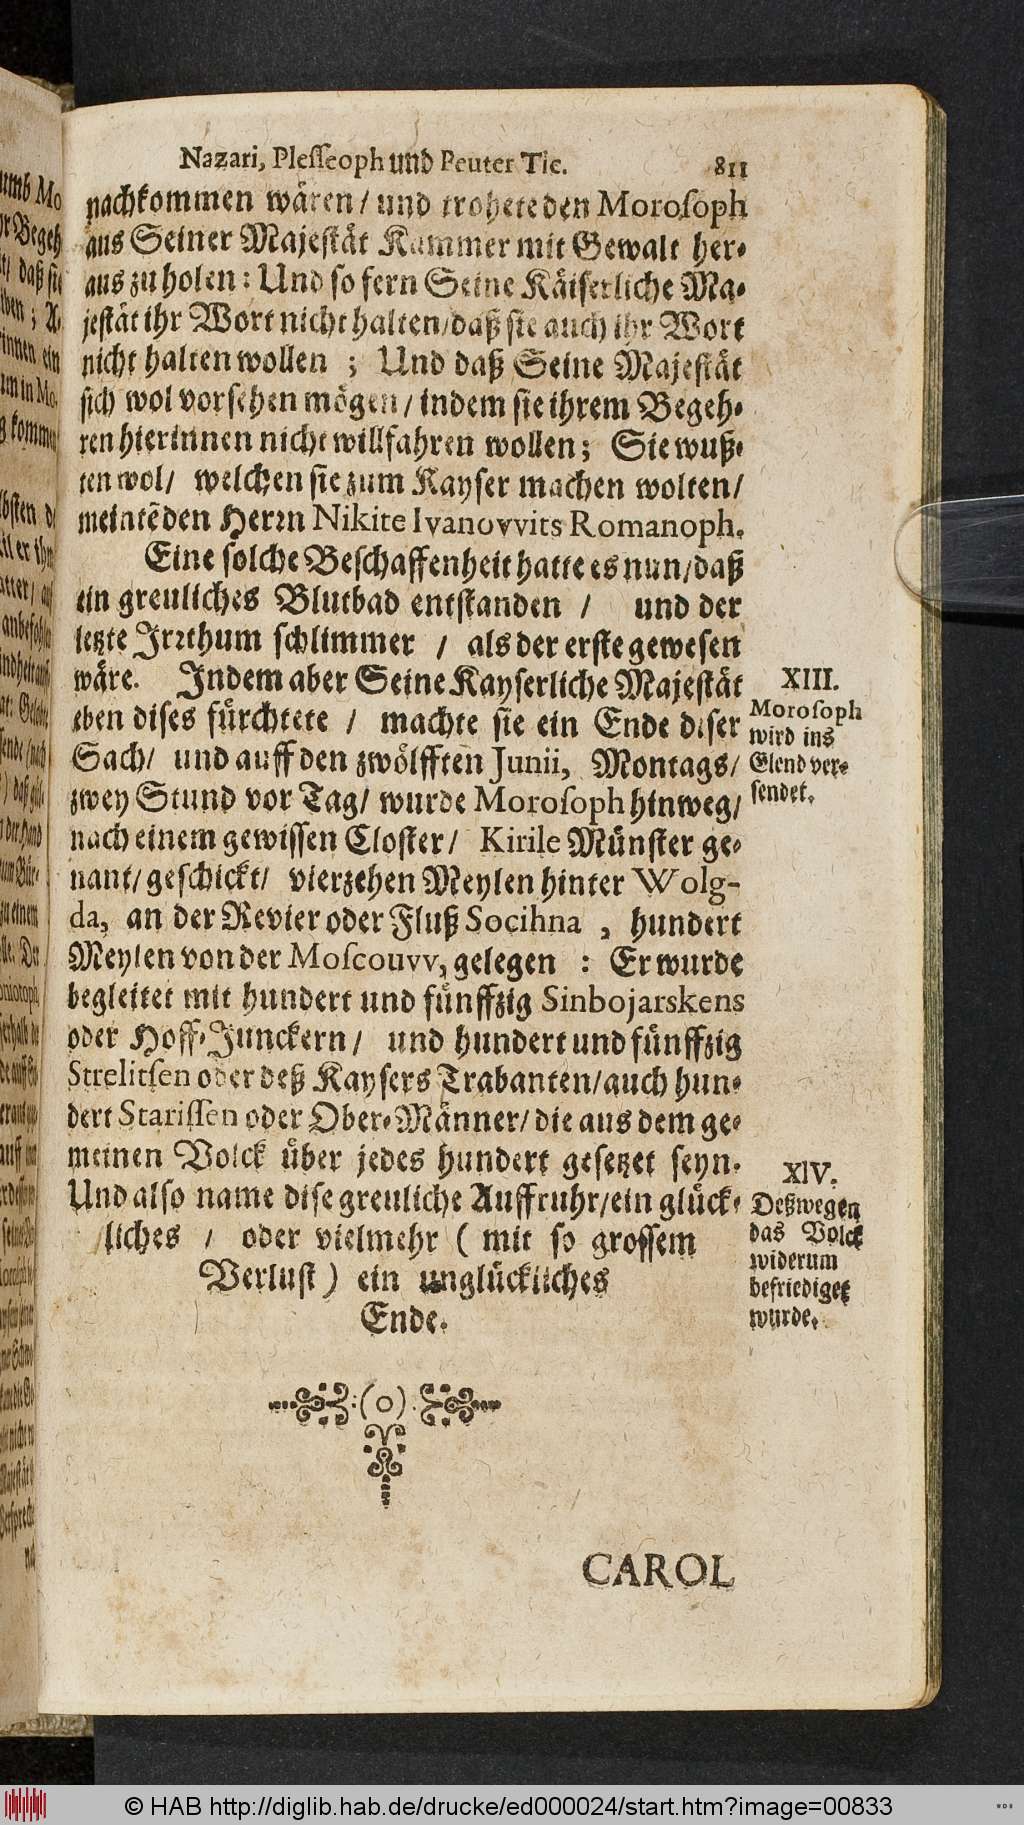 Nazari, Plesseoph und Peuter Tic. 811
nachkommen wären / und troheten den Morosoph
aus Seiner Majestät Kammer mit Gewalt her-
aus zu holen: Und so fern Seine Käiserliche Ma-
jestät ihr Wort nicht halten / daß sie auch ihr Wort
nicht halten wollen ; Und daß Seine Majestät
sich wol vorsehen mögen / indem sie ihrem Begeh-
ren hierinnen nicht willfahren wollen; Sie wuß-
ten wol / welchen sie zum Kayser machen wolten /
meintẽ den Herrn Nikite Ivanovvits Romanoph.
Eine solche Beschaffenheit hatte es nun / daß
ein greuliches Blutbad entstanden / und der
letzte Irrthum schlimmer / als der erste gewesen
wäre. Indem aber Seine Kayserliche Majestät
eben dises fürchtete / machte sie ein Ende diser
Sach / und auff den zwölfften Junii, Montags /
zwey Stund vor Tag / wurde Morosoph hinweg /
nach einem gewissen Closter / Kirile Münster ge-
nant / geschickt / vierzehen Meylen hinter Wolg-
da, an der Revier oder Fluß Socihna , hundert
Meylen von der Moscouvv, gelegen : Er wurde
begleitet mit hundert und fünffzig Sinbojarskens
oder Hoff-Junckern / und hundert und fünffzig
Strelitsen oder deß Kaysers Trabanten / auch hun-
dert Starissen oder Ober-Männer / die aus dem ge-
meinen Volck über jedes hundert gesetzet seyn.
Und also name dise greuliche Auffruhr / ein glück-
liches / oder vielmehr ( mit so grossem
Verlust ) ein unglückliches
Ende.
XIII.
Morosoph
wird ins
Elend ver-
sendet.
XIV.
Deßwegen
das Volck
widerum
befriediget
wurde.
:(o):
CAROL
© HAB http://diglib.hab.de/drucke/ed000024/start.htm?image=00833